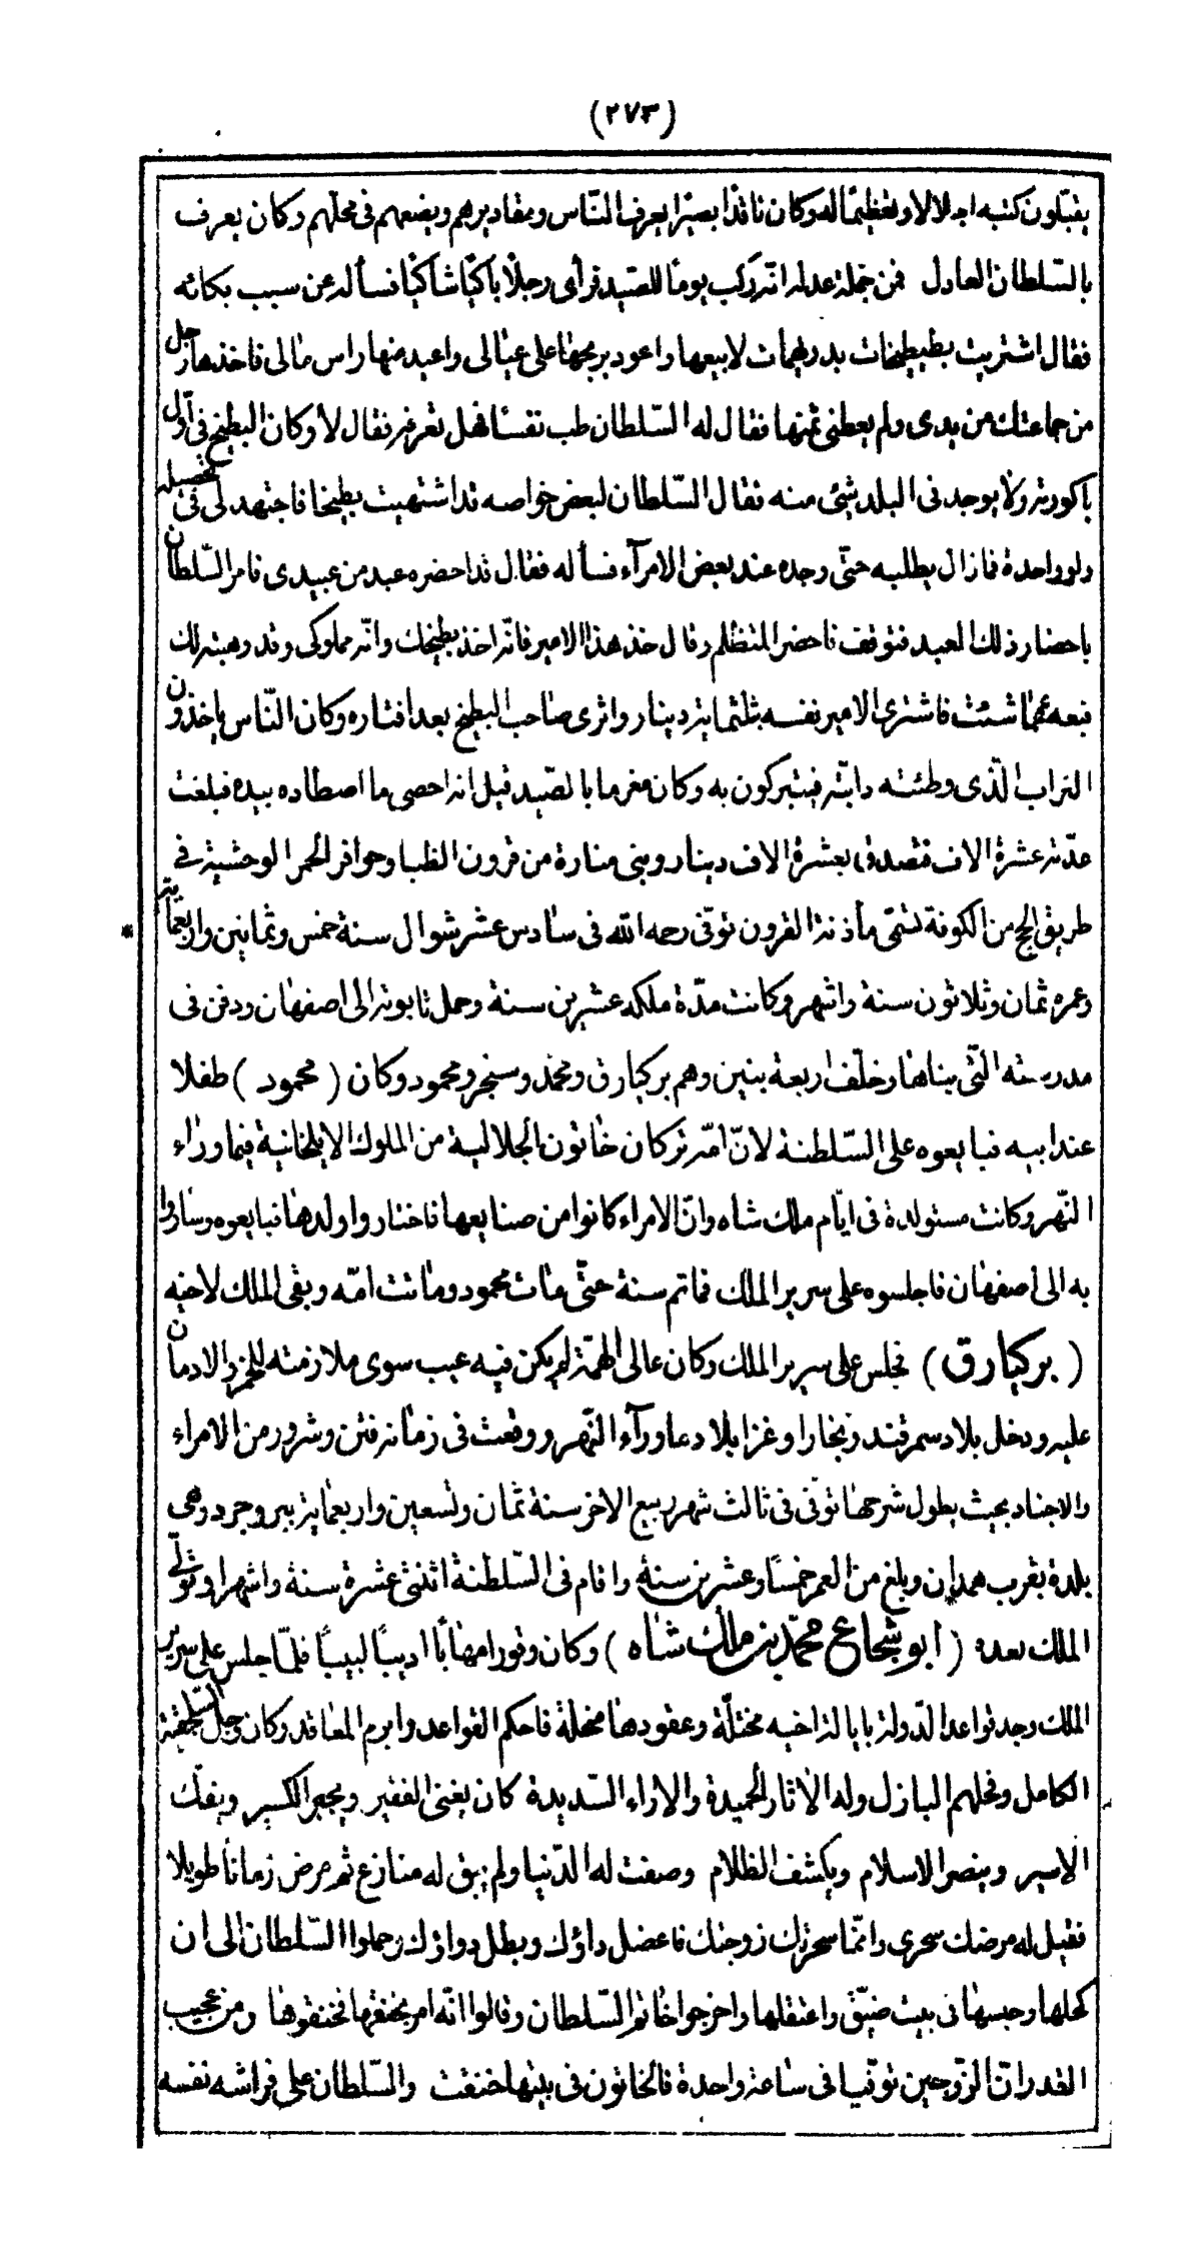 (٢٧٣)
يقبّلون كتبه اجلالا وتعظيمًا له وكان ناقدًا بصيرًا يعرف النّاس ومقاديرهم ويضعهم فى محلّهم وكان يعرف
بالسّلطان العادل فمن جملة عدله انّه ركب يومًا للصّيد فرأى رجلًا باكيًا شاكيًا فسأله عن سبب بكائه
فقال اشتريت بطيطيخات بدريهمات لابيعها واعود بربحها على عيالى واعيد منها راس مالى فاخذها رجل
من جماعتك من يدى ولم يعطنى ثمنها فقال له السّلطان طب نفسًا فهل تعرفه فقال لا وكان البطيخ فى اوّل
باكورته ولا يوجد فى البلد شئ منه فقال السّلطان لبعض خواصه قد اشتهيت بطيخا فاجتهد لى فى تحصيله
ولو واحدة فما زال يطلبه حتّى وجده عند بعض الامرآء فسأله فقال قد احضره عبد من عبيدى فامر السّلطان
باحضار ذلك العبد فتوقف فاحضر المتظلم وقال خذ هذا الامير فانّه اخذ بطيخك وانّه مملوكى وقد وهبته لك
فبعه بمهما شئت فاشترى الامير نفسه بثلثماية دينار واثرى صاحب البطيخ بعد افتقاره وكان النّاس ياخذون
التراب الّذى وطئته دابّته فيتبركون به وكان مغرما بالصّيد قيل انه احصى ما اصطاده بيده فبلغت
عدّته عشرة الاف فتصدق بعشرة الاف دينار وبنى منارة من قرون الظبا وحوافر الحمر الوحشية فى
طريق الحج من الكوفة تسمّى مأذنة القرون توفّى رحمه الله فى سادس عشر شوال سنة خمس وثمانين واربعماية
وعمره ثمان وثلاثون سنة واشهر وكانت مدّة ملكه عشرين سنة وحمل تابوته الى اصفهان ودفن فى
مدرسته الّتى بناها وخلّف اربعة بنين وهم بركيارق ومحمّد وسنجر ومحمود وكان ( محمود ) طفلا
عند ابيه فبايعوه على السّلطنة لانّ امّه تركان خاتون الجلالية من الملوك الايلخانية فيما وراء
النّهر وكانت مستولدة فى ايّام ملك شاه وانّ الامراء كانوا من صنايعها فاختاروا ولدها فبايعوه وساروا
به الى اصفهان فاجلسوه على سرير الملك فما تم سنة حتّى مات محمود وماتت امّه وبقى الملك لاخيه
( بركيارق ) فجلس على سرير الملك وكان عالى الهمّة لم يكن فيه عيب سوى ملازمته للخمر والادمان
عليه ودخل بلاد سمرقند وبخارا وغزا بلاد ماورآء النّهر ووقعت فى زمانه فتن وشرور من الامراء
والاجناد بحيث يطول شرحها توفّى فى ثالث شهر ربيع الاخر سنة ثمان وتسعين واربعماية ببروجرد وهى
بلدة بقرب همدان وبلغ من العمر خمسًا وعشرين سنة واقام فى السّلطنة اثنتى عشرة سنة واشهرا وتولّى
الملك بعده ( ابو شجاع محمّد بن ملك شاه ) وكان وقورا مهابًا اديبًا لبيبًا فلمّا جلس على سرير
الملك وجد قواعد الدّولة بايالة اخيه مختلّة وعقودها منحلة فاحكم القواعد وابرم المعاقد وكان رجل السّلجقية
الكامل وفحلهم البازل وله الاثار الحميدة والاراء السّديدة كان يغنى الفقير ويجبر الكسير ويفكّ
الاسير وينصر الاسلام ويكشف الظلام وصفت له الدّنيا ولم يبق له منازع ثم مرض زمانًا طويلا
فقيل له مرضك سحرى وانّما سحرتك زوجتك فاعضل داؤك وبطل دواؤك وحملوا السّلطان الى ان
كحلها وحبسها فى بيت ضيّق واعتقلها واخرجوا خاتم السّلطان وقالوا انّه امر بخنقها فخنقوها ومن عجيب
القدر انّ الزّوجين توفّيا فى ساعة واحدة فالخاتون فى بيتها خنقت والسّلطان على فراشه نفسه